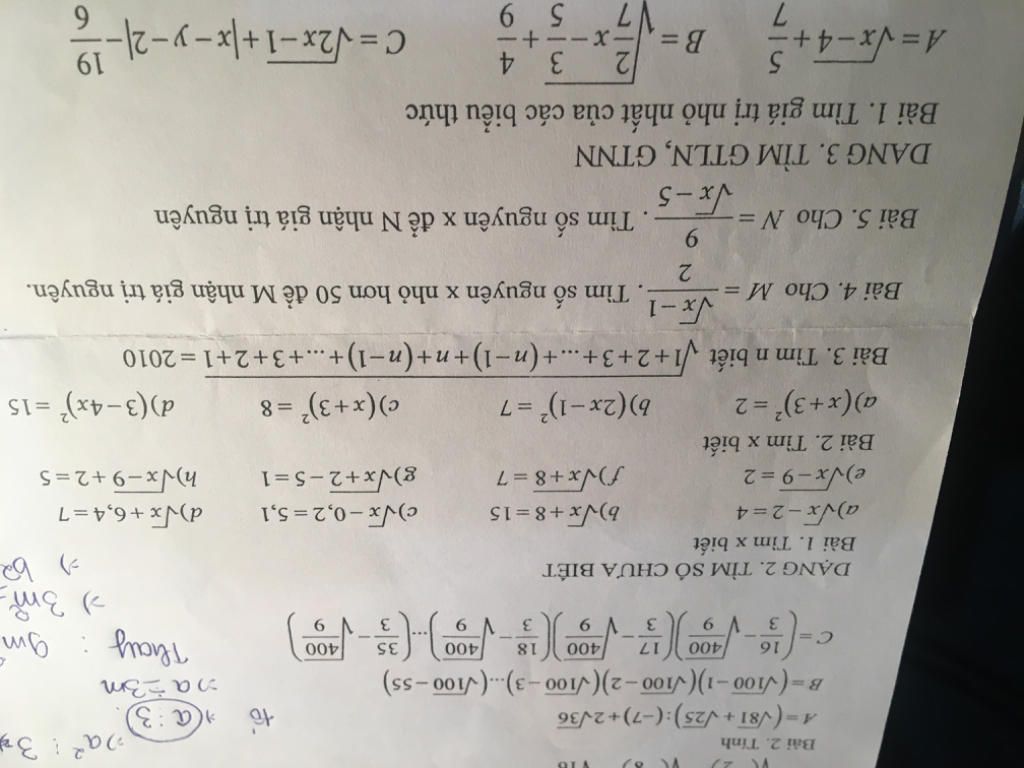 Bài 2. Tính
A = (√81 + √25) : (−7) + 2√36
B = (√100 − 1)(√100 − 2)(√100 − 3)...(√100 − 55)
C = (16/3 − √(400/9))(17/3 − √(400/9))(18/3 − √(400/9))...(35/3 − √(400/9))
DẠNG 2. TÌM SỐ CHƯA BIẾT
Bài 1. Tìm x biết
a) √x − 2 = 4 b) √x + 8 = 15 c) √x − 0,2 = 5,1 d) √x + 6,4 = 7
e) √(x − 9) = 2 f) √(x + 8) = 7 g) √(x + 2) − 5 = 1 h) √(x − 9) + 2 = 5
Bài 2. Tìm x biết
a) (x + 3)² = 2 b) (2x − 1)² = 7 c) (x + 3)² = 8 d) (3 − 4x)² = 15
Bài 3. Tìm n biết √(1 + 2 + 3 + ... + (n − 1) + n + (n − 1) + ... + 3 + 2 + 1) = 2010
Bài 4. Cho M = (√x − 1)/2. Tìm số nguyên x nhỏ hơn 50 để M nhận giá trị nguyên.
Bài 5. Cho N = 9/(√x − 5). Tìm số nguyên x để N nhận giá trị nguyên
DẠNG 3. TÌM GTLN, GTNN
Bài 1. Tìm giá trị nhỏ nhất của các biểu thức
A = √(x − 4) + 5/7 B = √(2/7 x − 3/5) + 4/9 C = √(2x − 1) + |x − y − 2| − 19/6
⇒ a² ⋮ 3
tố ⇒ a ⋮ 3
⇒ a = 3m
Thay : 9m
⇒ 3m²
⇒ b2